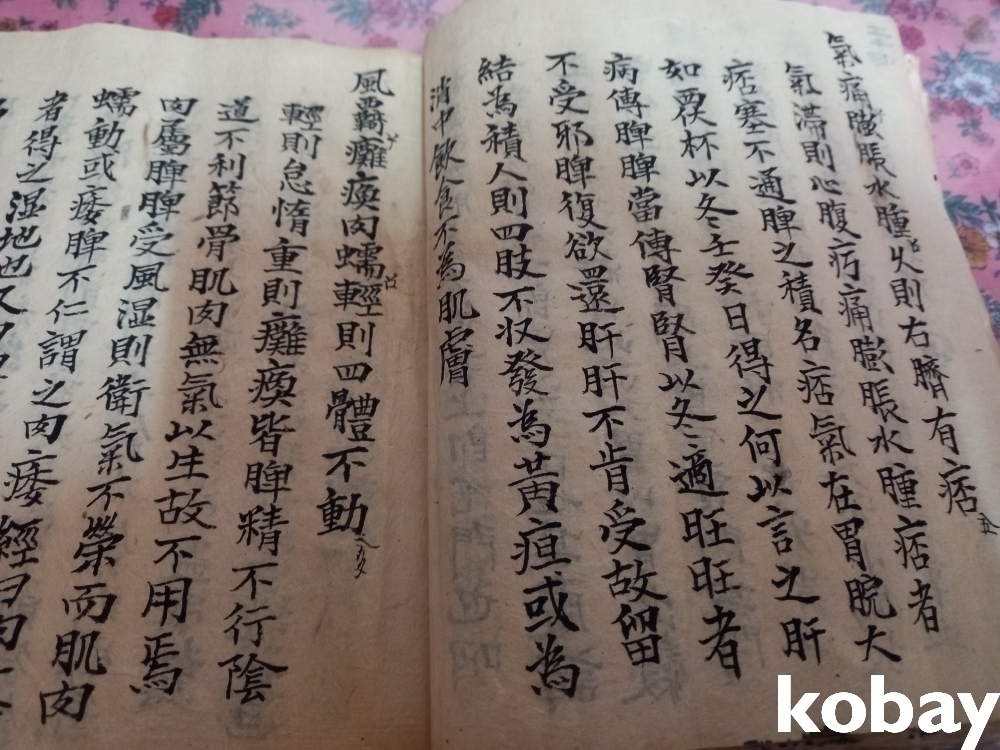 氣痛膨脹水腫火則右臍有痞
氣滯則心腹疞痛膨脹水腫痞者
痞塞不通脾之積名痞氣在胃脘大
如覆杯以冬壬癸日得之何以言之肝
病傳脾脾當傳腎腎以冬適旺旺者
不受邪脾復欲還肝肝不肯受故留
結為積人則四肢不収發為黄疸或為
消中飲食不為肌膚
風霸癱瘓肉蠕輕則四體不動
輕則怠惰重則癱瘓皆脾精不行陰
道不利節骨肌肉無氣以生故不用焉
肉屬脾脾受風湿則衛氣不榮而肌肉
蠕動或痿脾不仁謂之肉痿經曰肉
者得之湿地也又曰
kobay